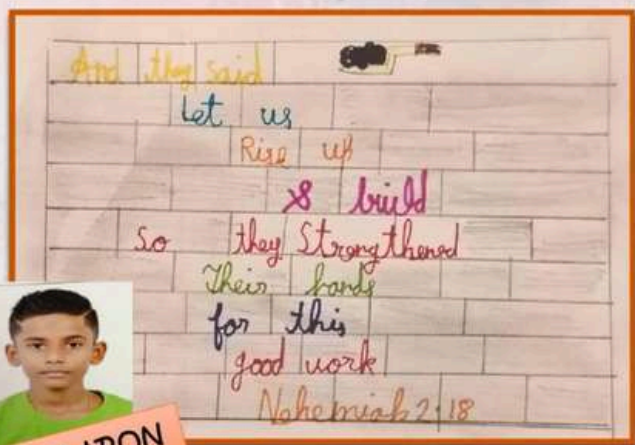 And they said
Let us
Rise up
& build
So they Strengthened
Their hands
for this
good work
Nehemiah 2:18